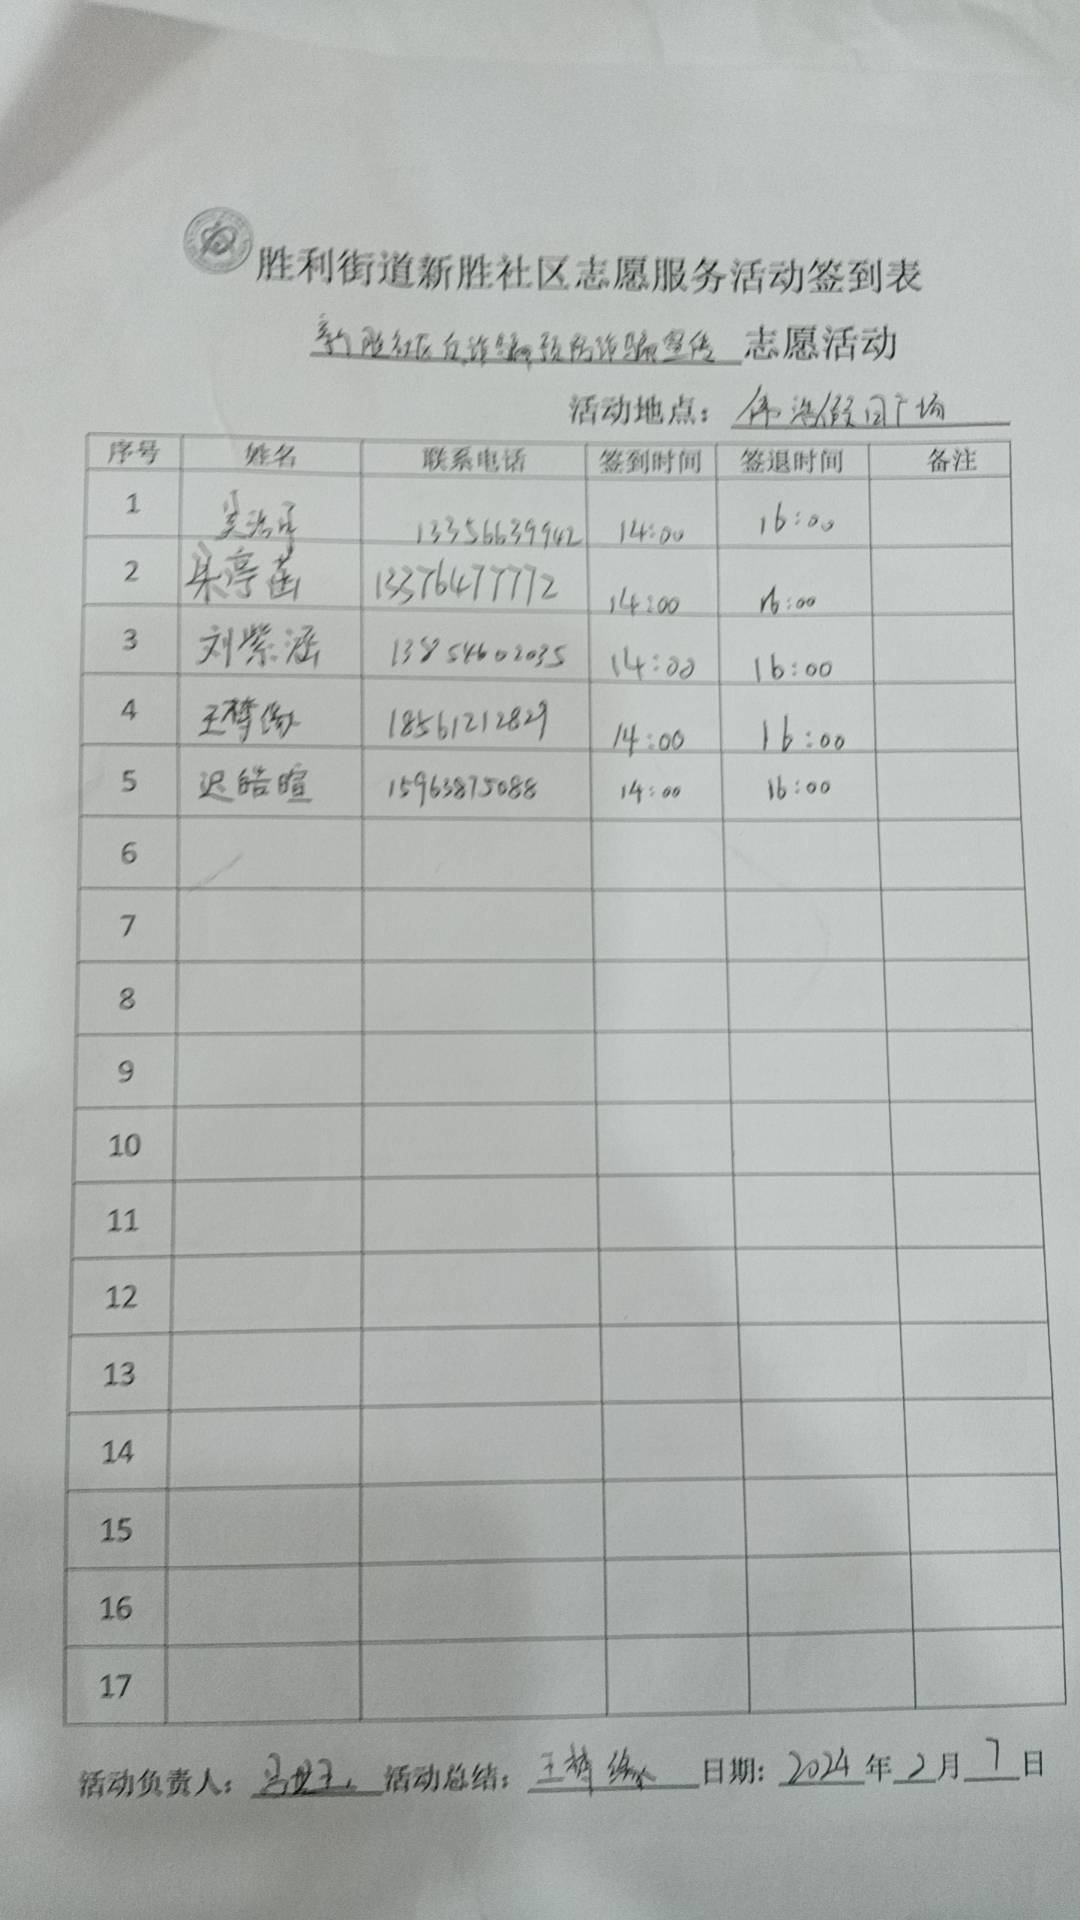 胜利街道新胜社区志愿服务活动签到表
新胜社区反诈骗预防诈骗宣传 志愿活动
活动地点： 伟浩假日广场
序号 姓名 联系电话 签到时间 签退时间 备注
1 13356639942 14:00 16:00
2 朱亭菡 13376477772 14:00 16:00
3 刘紫涵 13854602035 14:00 16:00
4 王梓 18561212829 14:00 16:00
5 迟皓暄 15963875088 14:00 16:00
6
7
8
9
10
11
12
13
14
15
16
17
活动负责人： 活动总结： 王梓 日期: 2024 年 2 月 7 日